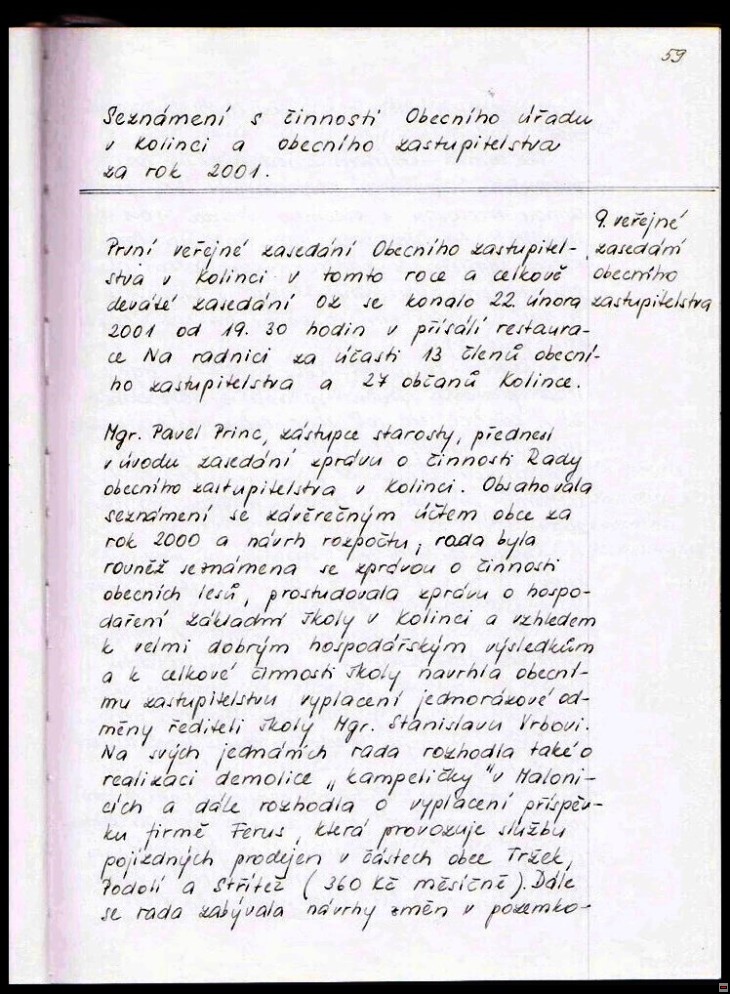 59
Seznámení s činností Obecního úřadu
v Kolinci a obecního zastupitelstva
za rok 2001.
9. veřejné
zasedání
obecního
zastupitelstva
První veřejné zasedání Obecního zastupitel-
stva v Kolinci v tomto roce a celkově
deváté zasedání OZ se konalo 22. února
2001 od 19.30 hodin v přísálí restaura-
ce Na radnici za účasti 13 členů obecní-
ho zastupitelstva a 27 občanů Kolince.
Mgr. Pavel Princ, zástupce starosty, přednesl
v úvodu zasedání zprávu o činnosti Rady
obecního zastupitelstva v Kolinci. Obsahovala
seznámení se závěrečným účtem obce za
rok 2000 a návrh rozpočtu, rada byla
rovněž seznámena se zprávou o činnosti
obecních lesů, prostudovala zprávu o hospo-
daření základní školy v Kolinci a vzhledem
k velmi dobrým hospodářským výsledkům
a k celkové činnosti školy navrhla obecní-
mu zastupitelstvu vyplacení jednorázové od-
měny řediteli školy Mgr. Stanislavu Vrbovi.
Na svých jednáních rada rozhodla také o
realizaci demolice „kampeličky" v Maloni-
cích a dále rozhodla o vyplacení příspěv-
ku firmě Ferus, která provozuje službu
pojízdných prodejen v částech obce Tržek,
Podolí a Střítež (360 Kč měsíčně). Dále
se rada zabývala návrhy změn v pozemko-